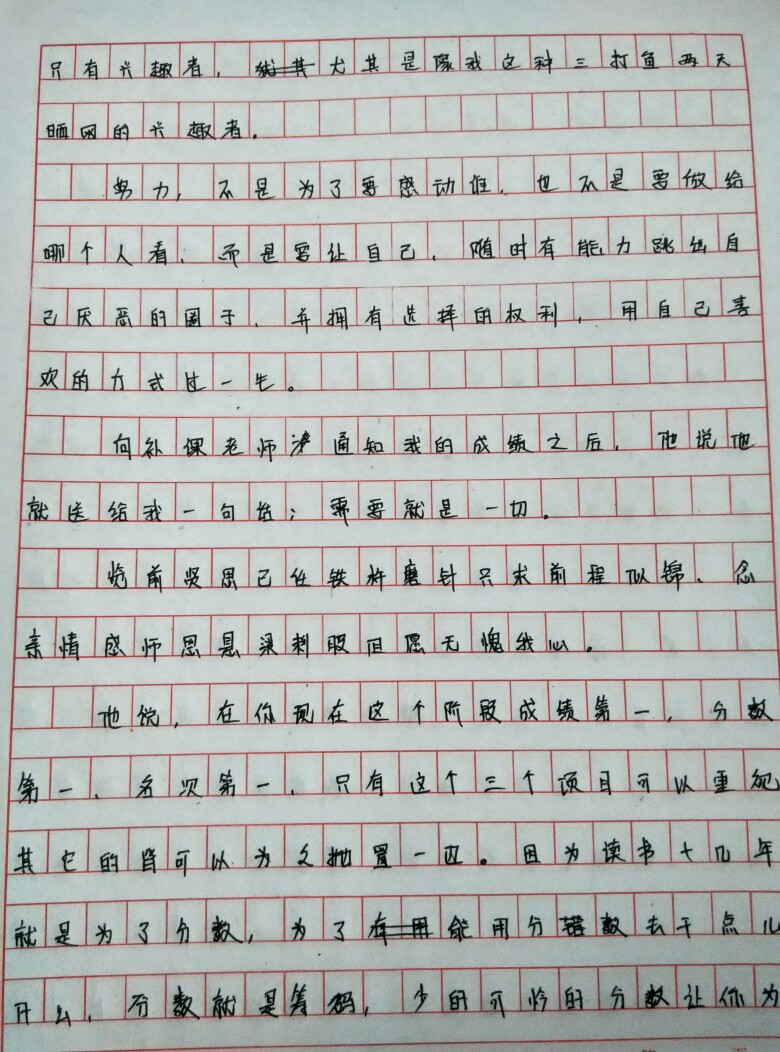 只有兴趣者，尤其是像我这种三打鱼两天
晒网的兴趣者。
努力，不是为了要感动谁，也不是要做给
哪个人看，而是要让自己，随时有能力跳出自
己厌恶的圈子，并拥有选择的权利，用自己喜
欢的方式过一生。
向补课老师通知我的成绩之后，他说他
就送给我一句话；需要就是一切。
览前贤思己任铁杵磨针只求前程似锦、念
亲情感师恩悬梁刺股但愿无愧我心。
他说，在你现在这个阶段成绩第一，分数
第一、名次第一，只有这个三个项目可以重视
其它的皆可以为之抛置一边。因为读书十几年
就是为了分数，为了能用分数去干点儿
什么，分数就是筹码，少的可怜的分数让你为